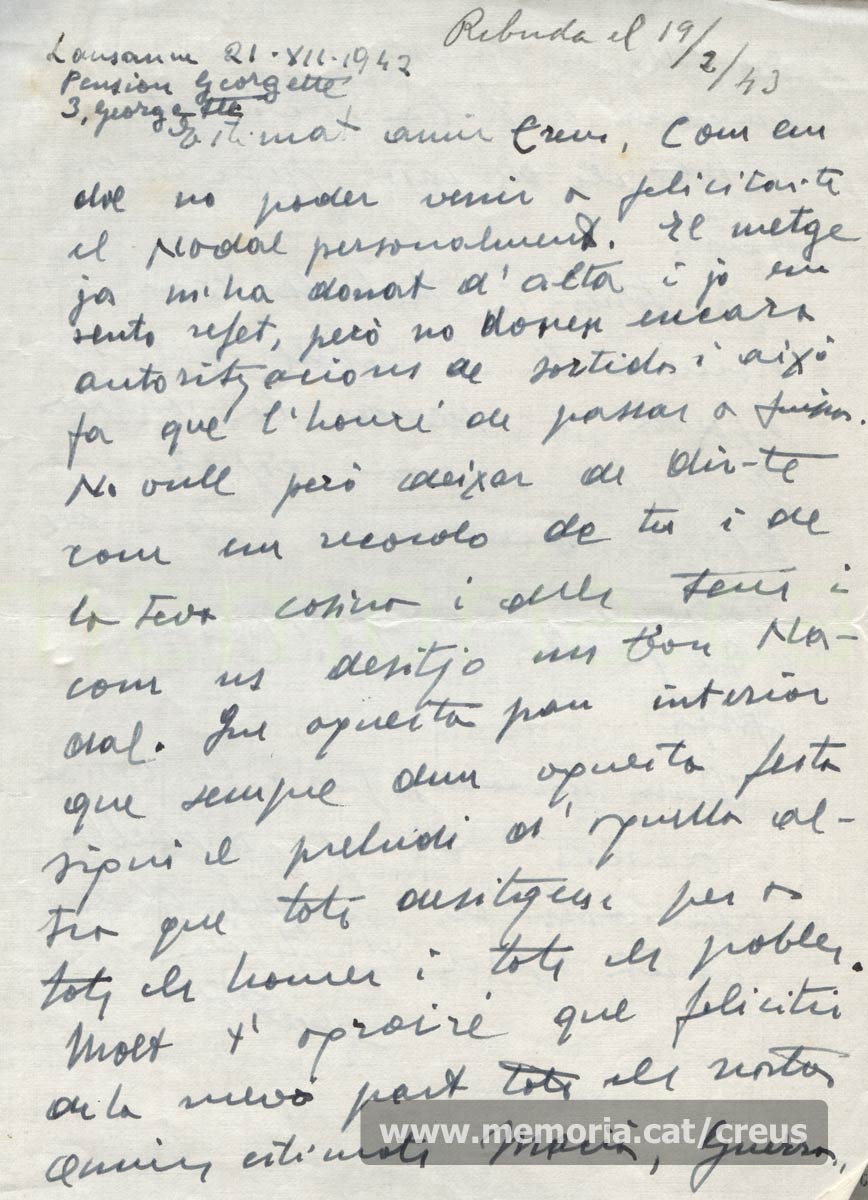 Rebuda el 19/2/43
Lausanne 21-XII-1942
Pension Georgette
3, Georgette
Estimat amic Creus, Com em
dol no poder venir a felicitar-te
el Nadal personalment. El metge
ja m'ha donat d'alta i jo em
sento refet, però no donen encara
autoritzacions de sortida i això
fa que l'hauré de passar a Suïssa.
No vull però deixar de dir-te
com em recordo de tu i de
la teva cosina i dels teus i
com us desitjo un bon Na-
dal. Que aquesta pau interior
que sempre duu aquesta festa
sigui el preludi d'aquella al-
tra que tots desitgem per a
tots els homes i tots els pobles.
Molt t'agrairé que felicitis
de la meva part tots els nostres
amics estimats Macià, Guerra,
www.memoria.cat/creus